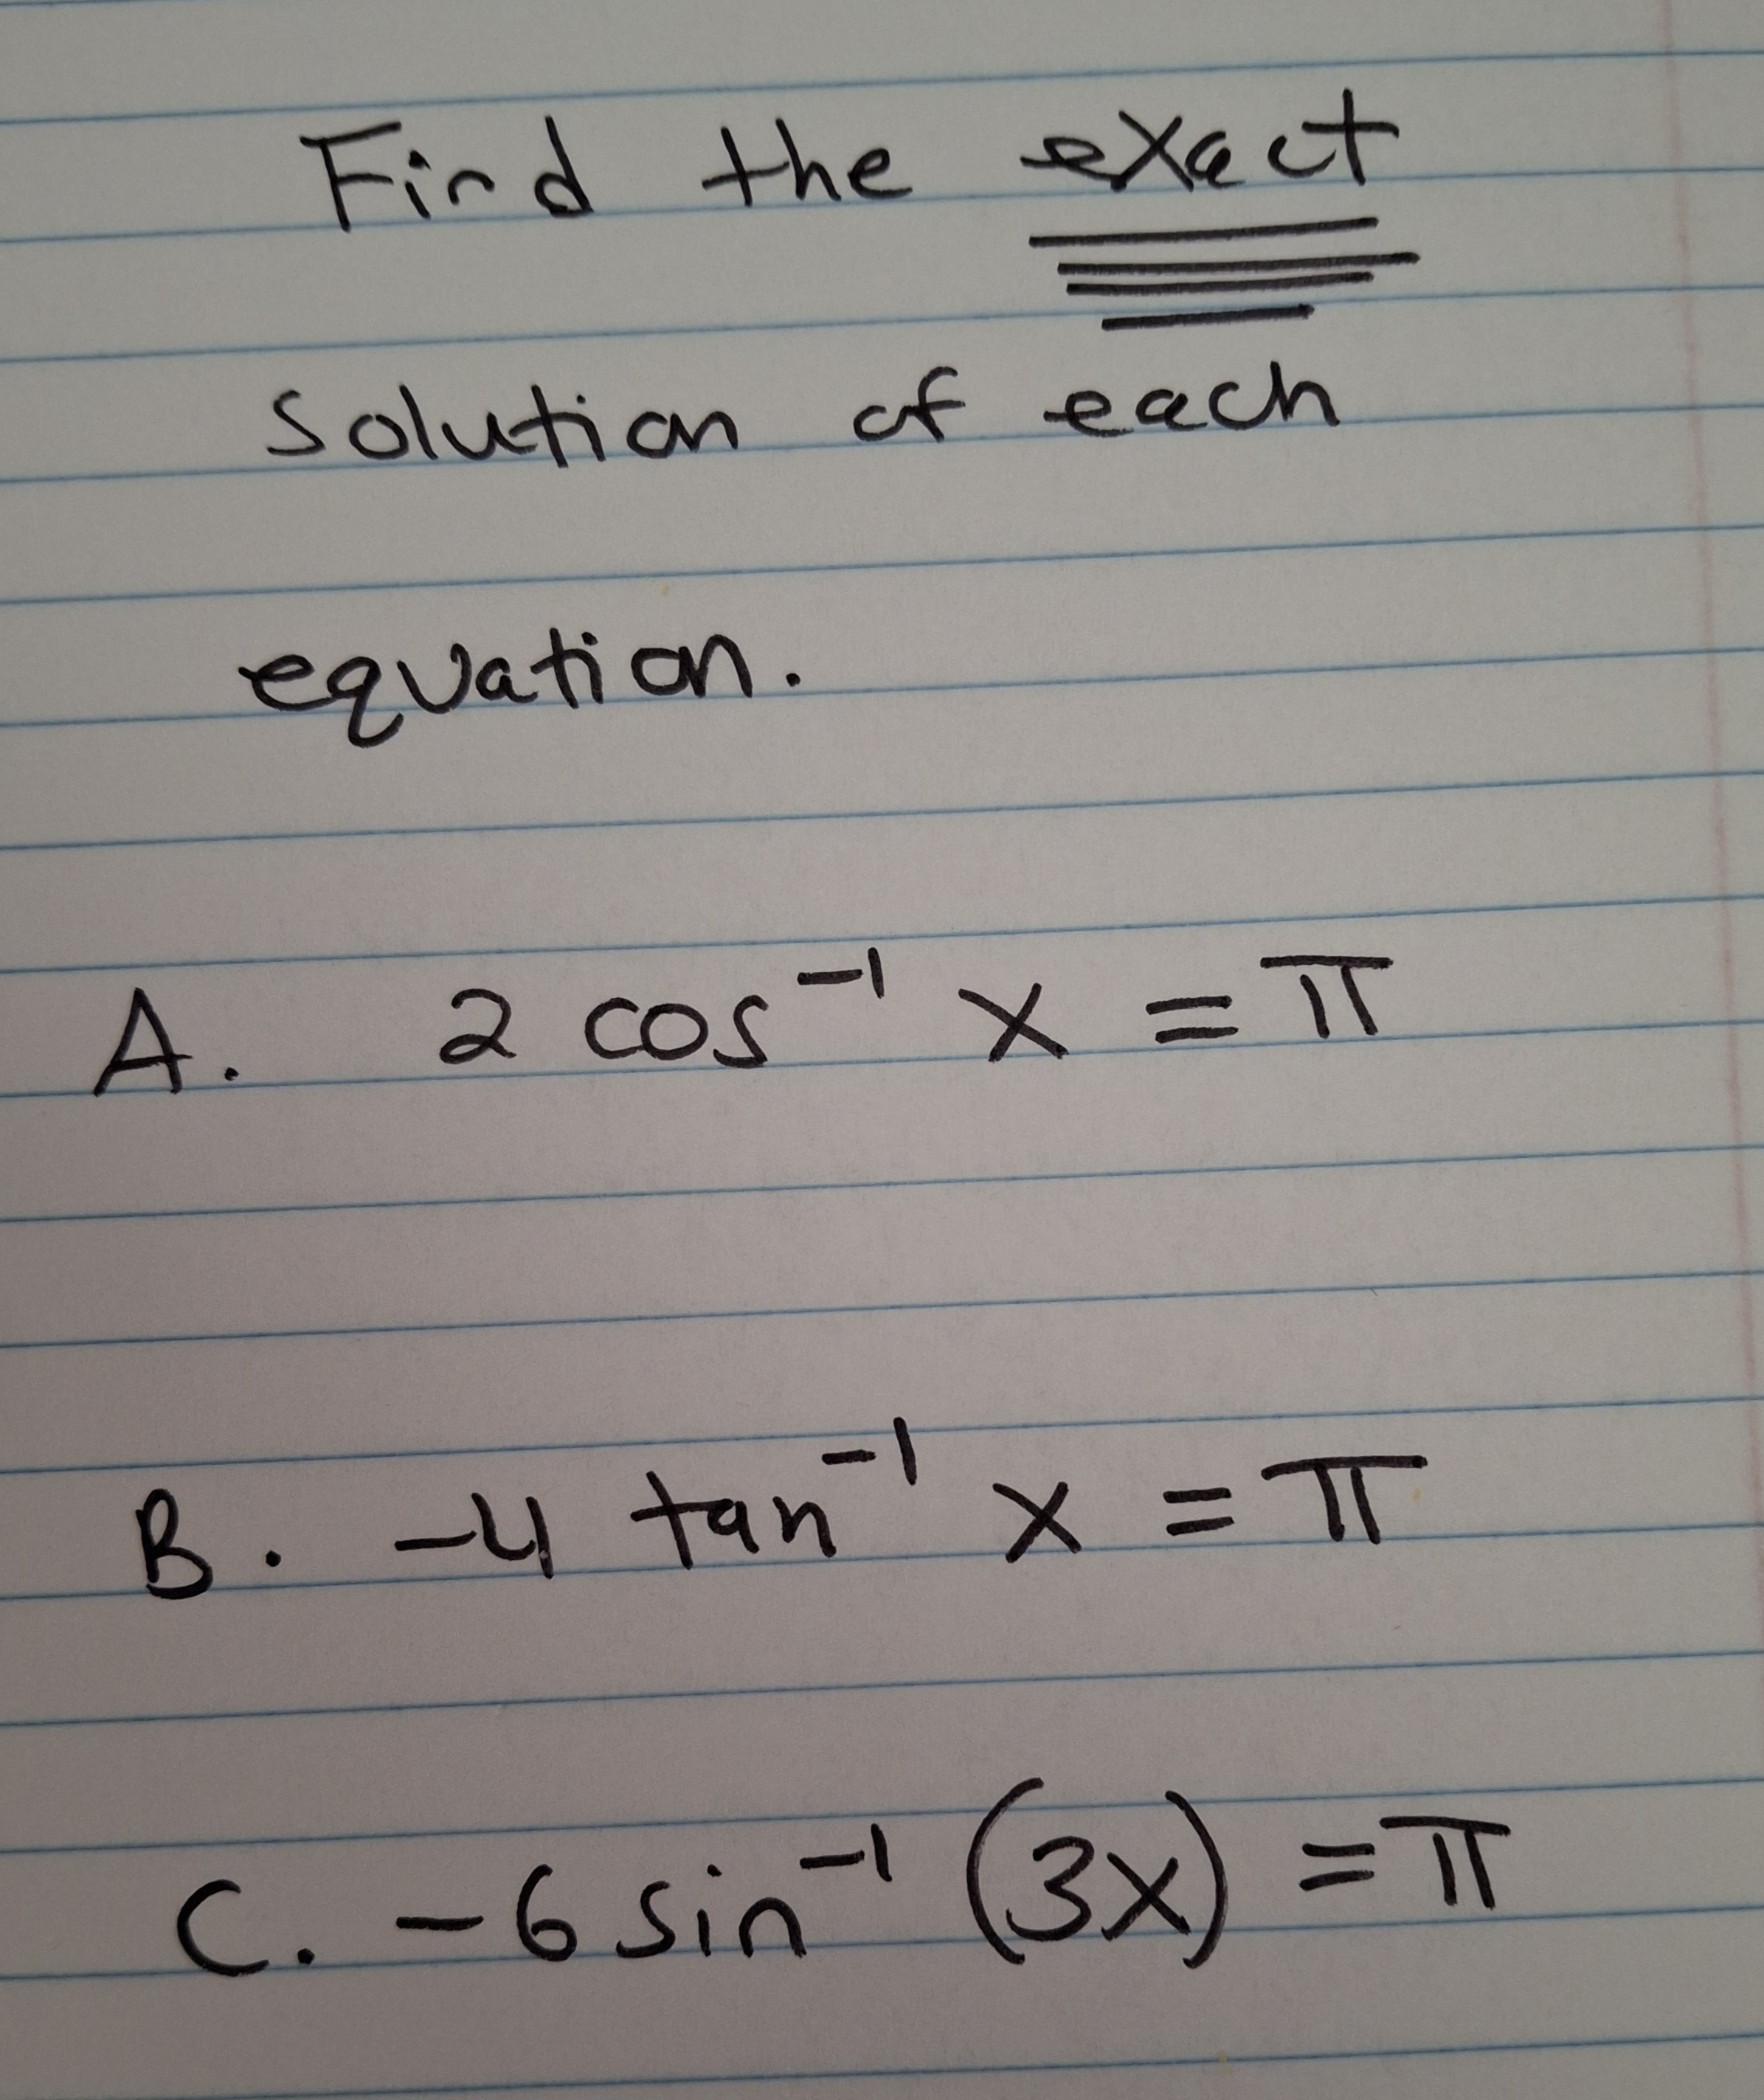 Find the exact
solution of each
equation.
A. 2 cos⁻¹ x = π
B. -4 tan⁻¹ x = π
C. -6 sin⁻¹ (3x) = π